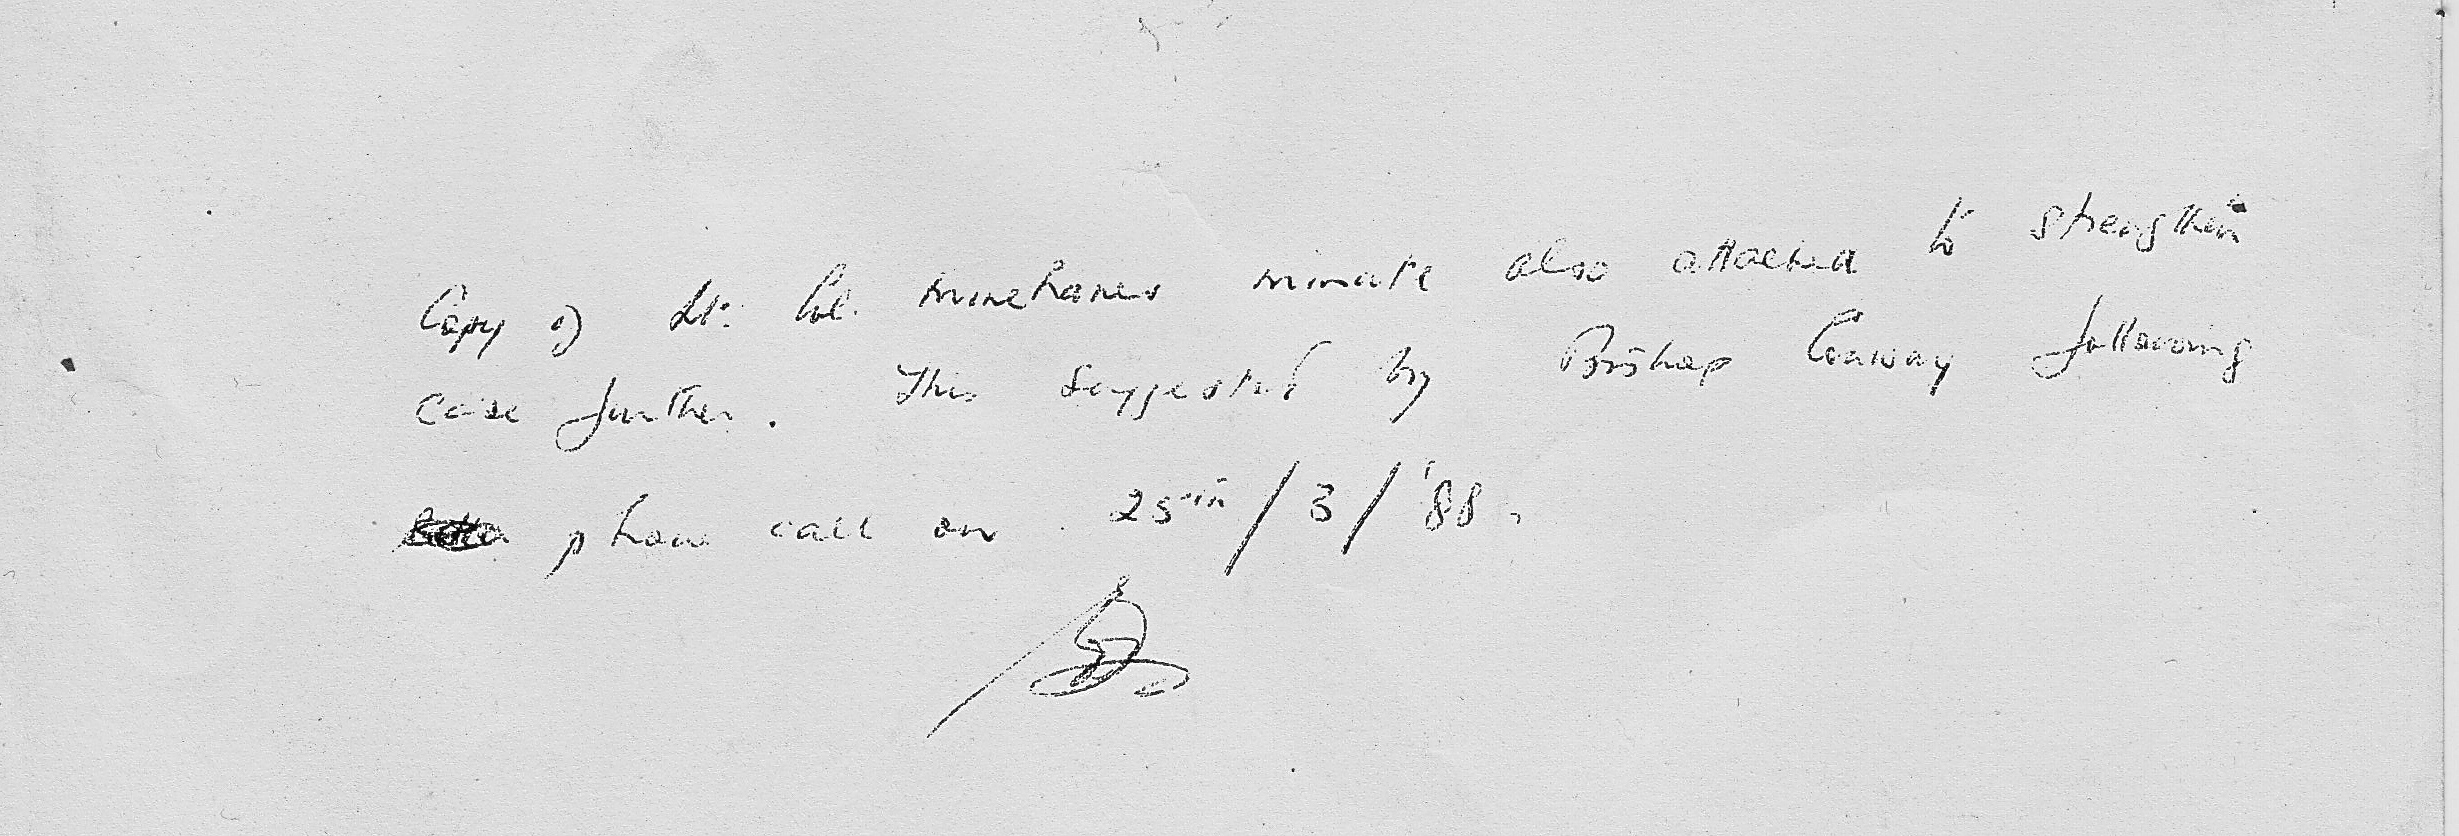 Copy of Lt. Col. Minehanes minute also attached to strengthen
case further. This suggested by Bishop Conway following
phone call on 25th/3/'88.